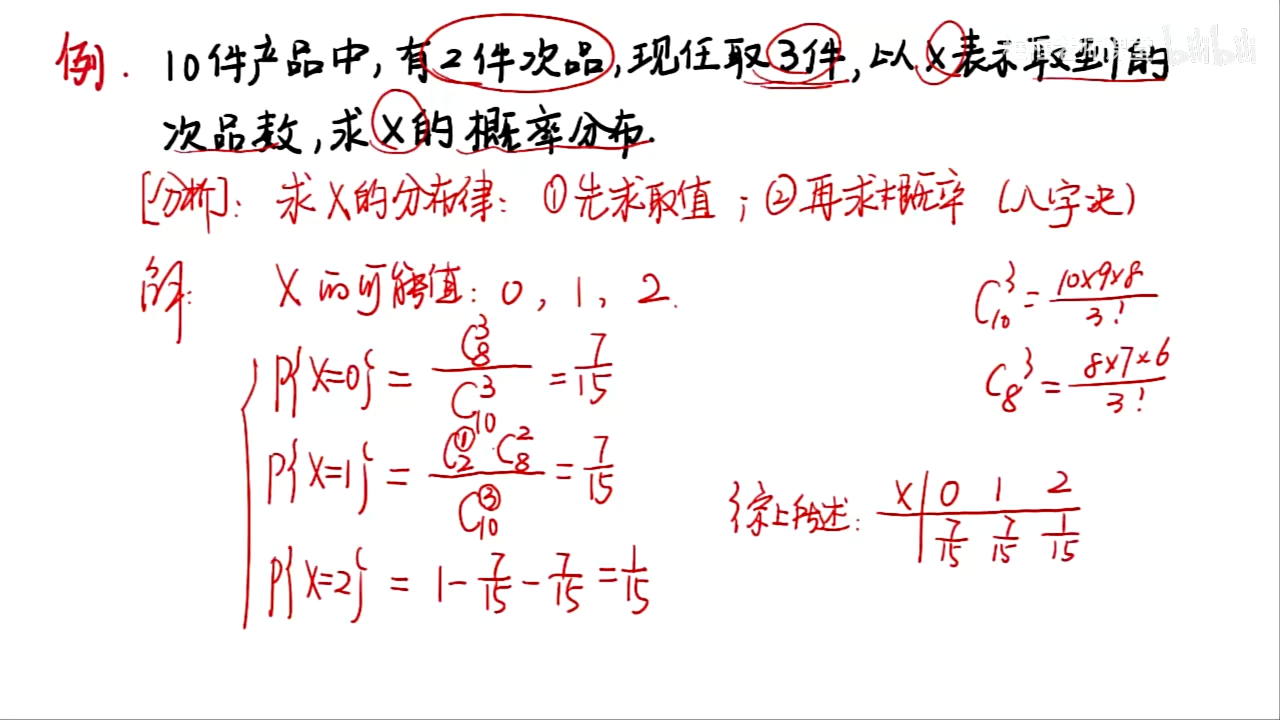 例. 10件产品中,有2件次品,现任取3件,以X表示取到的
次品数,求X的概率分布.
[分析]: 求X的分布律: ①先求取值; ②再求概率 (八字决)
解: X的可能值: 0, 1, 2.
P{X=0} = C₈³/C₁₀³ = 7/15
P{X=1} = C₂¹·C₈²/C₁₀³ = 7/15
P{X=2} = 1 - 7/15 - 7/15 = 1/15
C₁₀³ = 10×9×8/3!
C₈³ = 8×7×6/3!
综上所述:
X 0 1 2
7/15 7/15 1/15
bilibili